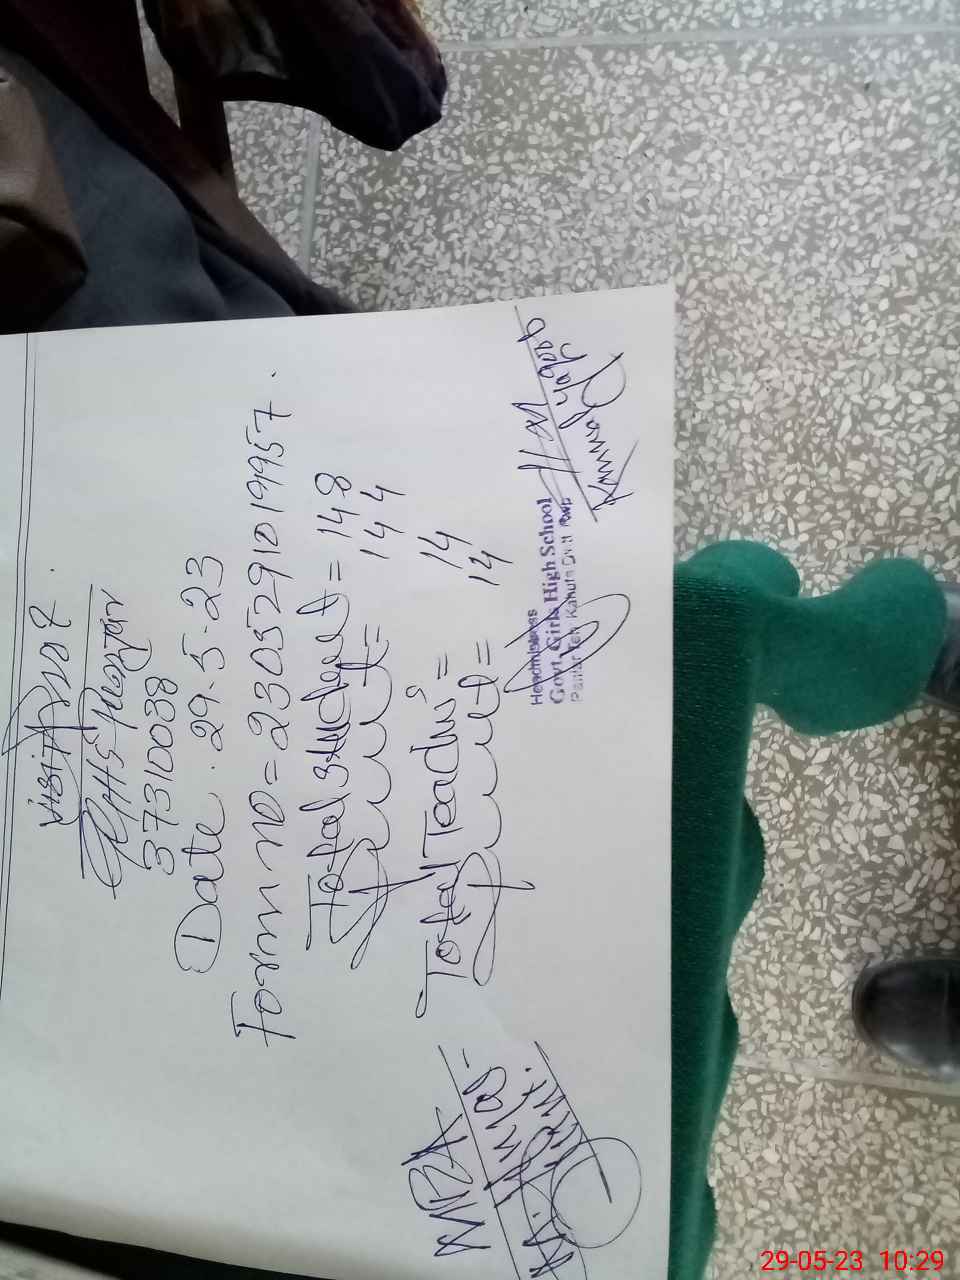 visit
37310038
Date. 29-5-23
Form no= 2305291019957.
Total student = 148
Present = 144
Total Teachers = 14
Present = 14
MEA
Headmistress
Govt. Girls High School
Kahuta Distt Rwp
Yaqoob
29-05-23 10:29